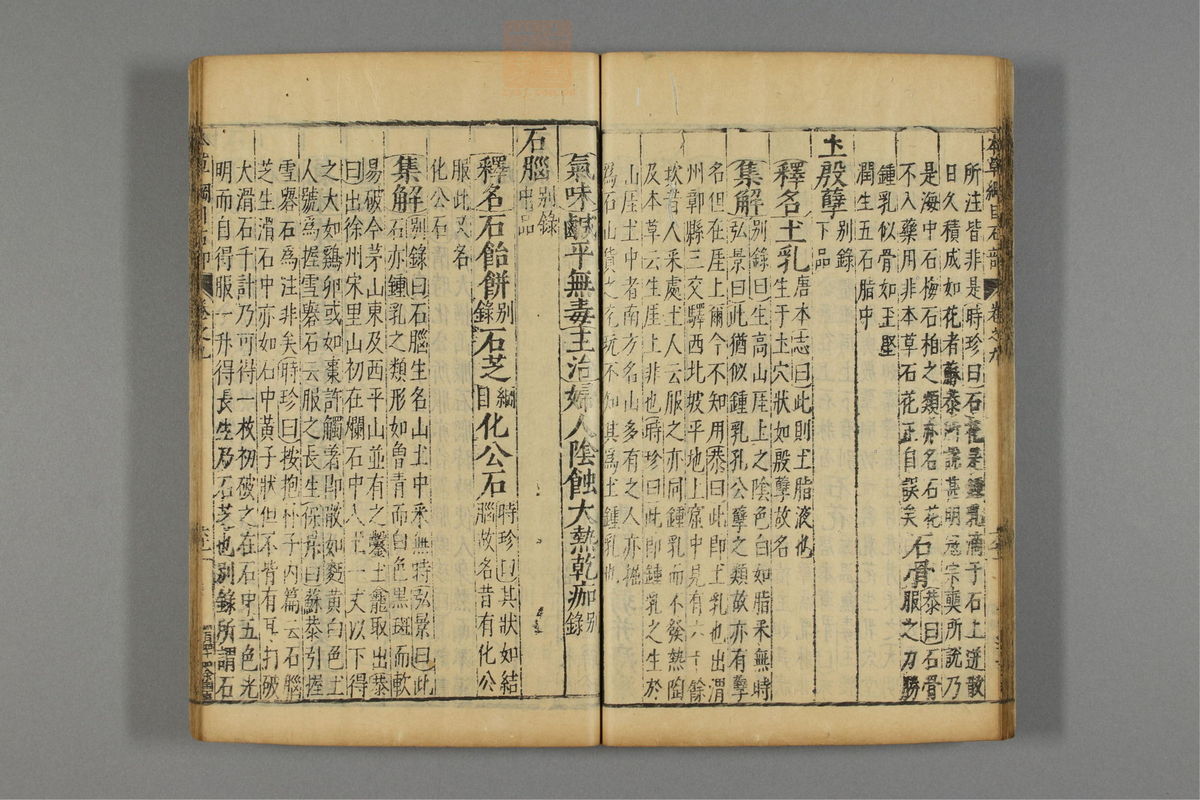 本草綱目石部　卷之九
所注皆非是時珍曰石花是鍾乳滴于石上迸散
日久積成如花者蘇恭所說甚明寇宗奭所說乃
是海中石梅石柏之類亦名石花
不入藥用非本草石花正自誤矣石骨恭曰石骨服之力勝
鍾乳似骨如玉堅
潤生五石脂中
土殷孽別錄下品
釋名土乳唐本志曰此則土脂液也
生于土穴狀如殷孽故名
集解別錄曰生高山厓上之陰色白如脂采無時
弘景曰此猶似鍾乳孔公孽之類故亦有孽
名但在厓上爾今不知用恭曰此即土乳也出渭
州鄣縣三交驛西北坡平地上窟中見有六十餘
坎昔人采處土人云服之亦同鍾乳而不發熱陶
及本草云生厓上非也時珍曰此即鍾乳之生於
山厓土中者南方名山多有之人亦掘
為石山貨之充玩不知其為土鍾乳也
氣味鹹平無毒主治婦人陰蝕大熱乾痂別錄
石腦別錄中品
釋名石飴餅別錄石芝綱目化公石時珍曰其狀如結
腦故名昔有化公
服此又名
化公石
集解別錄曰石腦生名山土中采無時弘景曰此
石亦鍾乳之類形如曾青而白色黑斑而軟
易破今茅山東及西平山並有之鑿土龕取出恭
曰出徐州宋里山初在爛石中入土一丈以下得
之大如雞卵或如棗許觸著即散如麪黃白色土
人號為握雪礜石云服之長生保昇曰蘇恭引握
雪礜石為注非矣時珍曰按抱朴子內篇云石腦
芝生滑石中亦如石中黃子狀但不皆有耳打破
大滑石千計乃可得一枚初破之在石中五色光
明而自得服一升得長生乃石芝也別錄所謂石